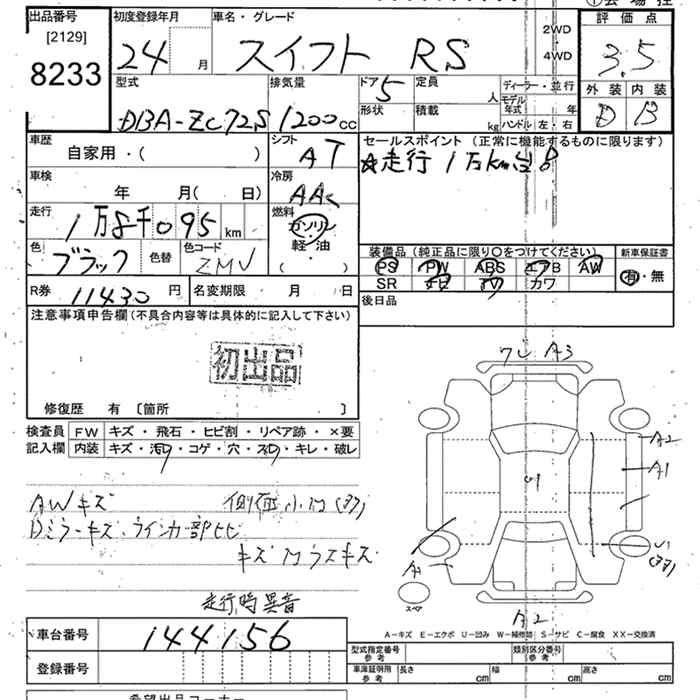 出品番号 初度登録年月 車名・グレード 評価点
[2129]
8233
24 月 スイフト RS 2WD 4WD 3.5
外装 内装
D B
型式 排気量 ドア 定員 ディーラー・並行
DBA-ZC72S 1200cc 5 人 モデル年式 年
形状 積載 kg ハンドル 左・右
車歴 シフト セールスポイント (正常に機能するものに限ります)
自家用・( ) AT ☆走行1万km台!
車検 冷房
年 月( 日) AAC
走行 燃料
1万8千095 km ガソリン
軽・油
( )
色 色替 色コード
ブラック ZMV
装備品 (純正品に限り〇をつけてください) 新車保証書
PS PW ABS エアB AW 有・無
SR ナビ カワ
R券 11430円 名変期限 月 日 後日品
注意事項申告欄 (不具合内容等は具体的に記入して下さい)
初出品
修復歴 有 〔箇所 〕
検査員記入欄 FW キズ・飛石・ヒビ割・リペア跡・×要
内装 キズ・汚・コゲ・穴・スレ・キレ・破レ
ワレ A3
A2
A1
U1
A1
A2
スペア
AWキズ
Dミラーキズ・ウインカ部ヒビ
走行時異音
A-キズ E-エクボ U-凹み W-補修跡 S-サビ C-腐食 XX-交換済
車台番号 144156
登録番号
型式指定番号 参考 類別区分番号 参考
車庫証明用 参考 長さ cm 幅 cm 高さ cm
希望出品コーナー